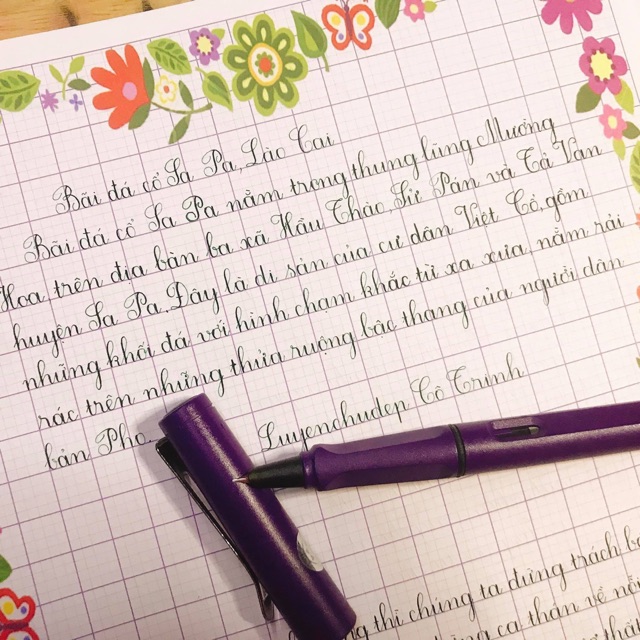 Bãi đá cổ Sa Pa, Lào Cai
Bãi đá cổ Sa Pa nằm trong thung lũng Mường
Hoa trên địa bàn ba xã Hầu Thào, Sử Pán và Tả Van
huyện Sa Pa. Đây là di sản của cư dân Việt Cổ, gồm
những khối đá với hình chạm khắc từ xa xưa, nằm rải
rác trên những thửa ruộng bậc thang của người dân
bản Pho.
Luyenchudep Cô Trinh
thì chúng ta đừng trách
ca thán về